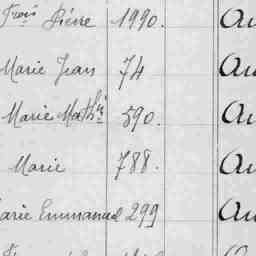 Frois Pierre 1990. Au
Marie Jean 74 Au
Marie Mathie 590. Au
Marie 788. Au
Marie Emmanuel 299 Au